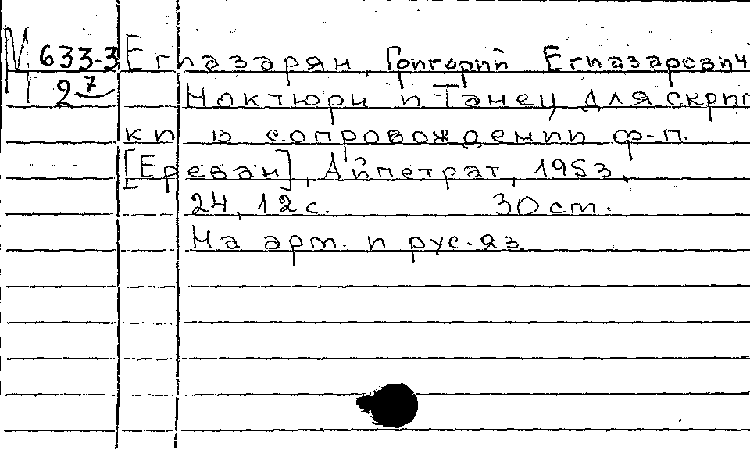 М 633-3 Егиазарян, Григорий Егиазарович
27 Ноктюрн и Танец для скрип
ки в сопровождении ф-п.
[Ереван], Айпетрат, 1953.
24, 12 с. 30 cm.
На арм. и рус. яз.